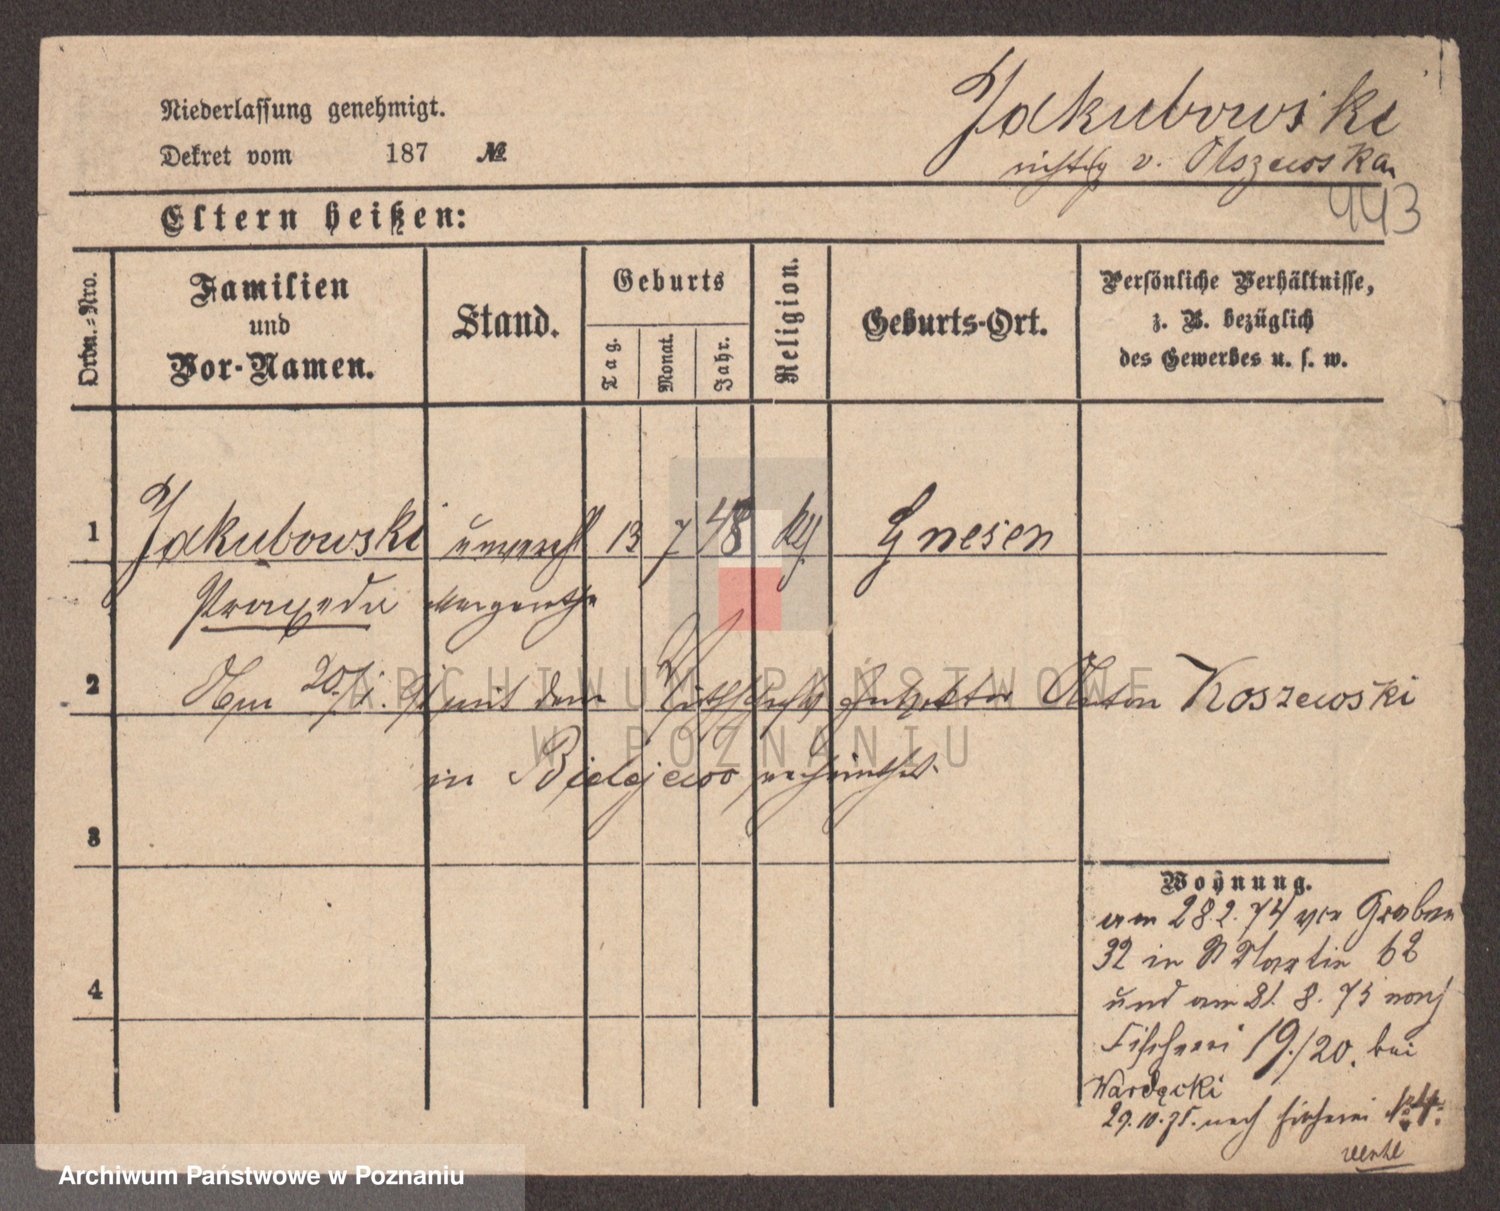 Niederlassung genehmigt.
Dekret vom 187 №
Jakubowski
richtig v. Olszewska
443
Eltern heißen:
Ordn.-Nro.
Familien
und
Vor-Namen.
Stand.
Geburts
Tag.
Monat.
Jahr.
Religion.
Geburts-Ort.
Persönliche Verhältnisse,
z. B. bezüglich
des Gewerbes u. s. w.
1 Jakubowski unvereh 13 7 48 kth Gnesen
Praxeda
2 Am 20/1. mit dem Wirthschafts Inspektor Anton Koszewski
in verheirathet.
3
4
Wohnung.
am 28.2.74 von Graben
32 in St Martin 62
und am 21. 8. 75 nach
Fischerei 19/20. bei
Wardęcki
29.10.75. nach Fischerei № 4.
ARCHIWUM PAŃSTWOWE
W POZNANIU
Archiwum Państwowe w Poznaniu